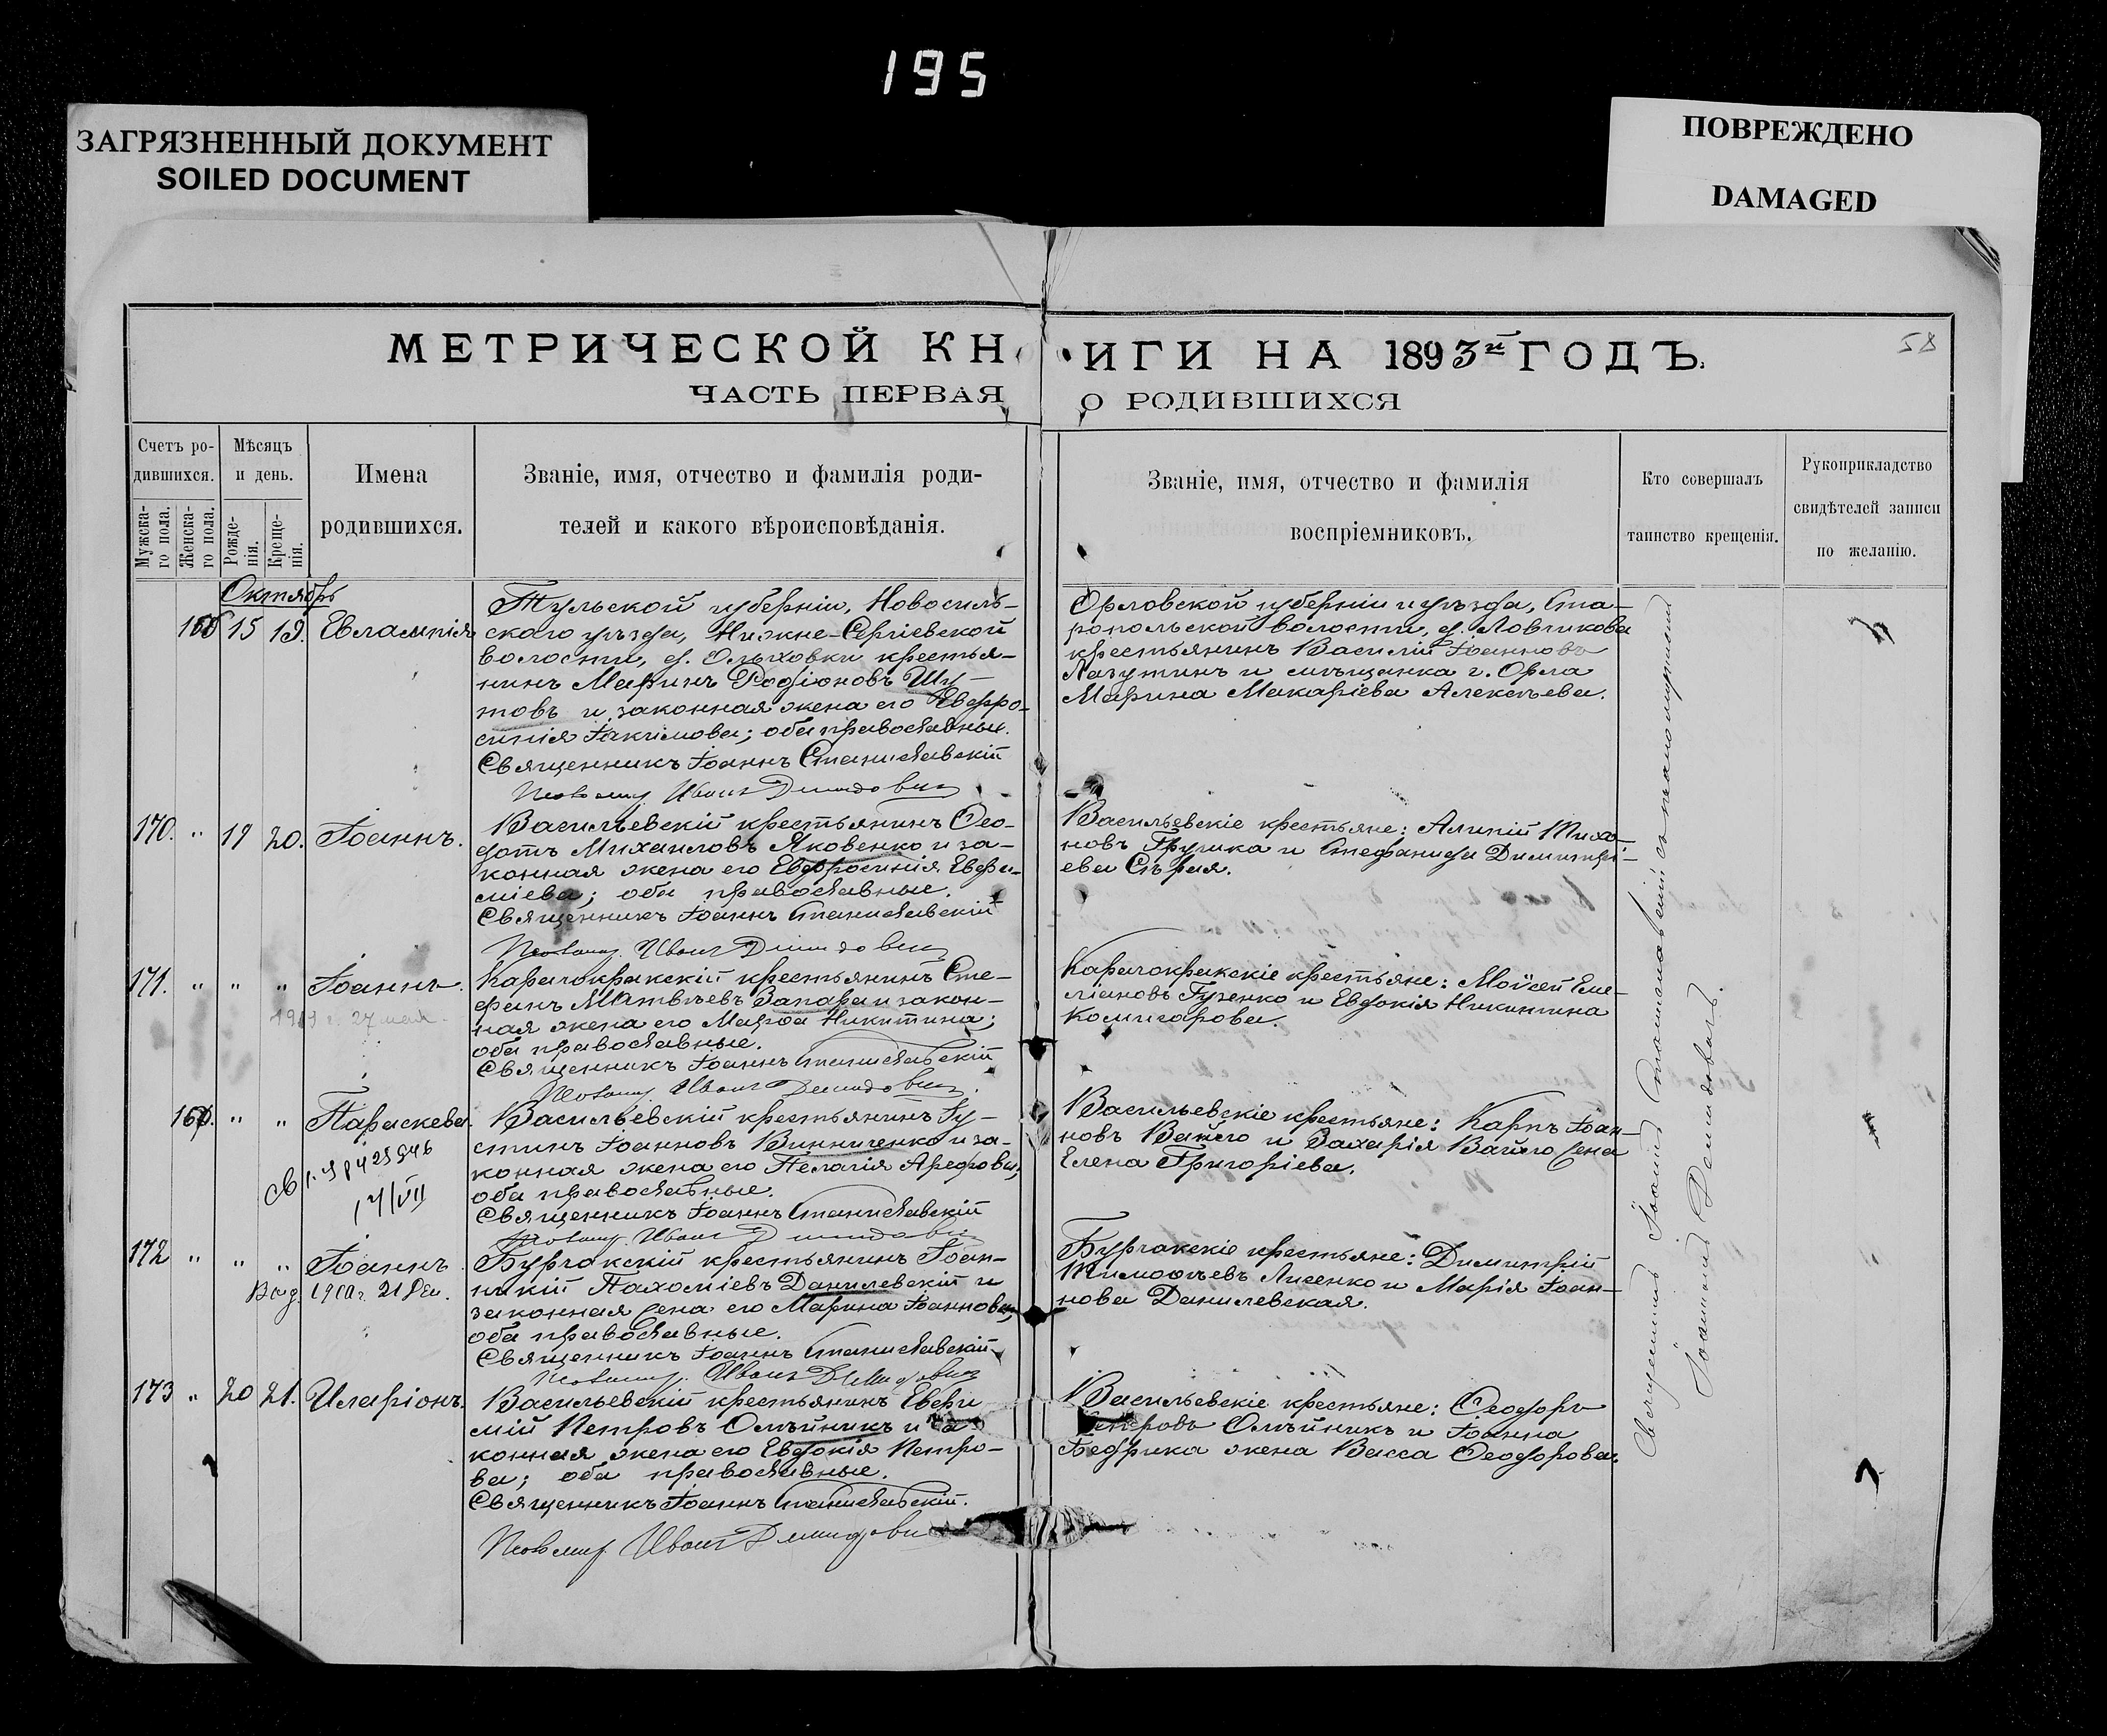 195
ЗАГРЯЗНЕННЫЙ ДОКУМЕНТ
SOILED DOCUMENT
ПОВРЕЖДЕНО
DAMAGED
58
МЕТРИЧЕСКОЙ КНИГИ НА 1893й ГОДЪ.
ЧАСТЬ ПЕРВАЯ О РОДИВШИХСЯ
Счетъ ро-
дившихся.
Мужска-
го пола.
Женска-
го пола.
Мѣсяцъ
и день.
Рожде-
нія.
Креще-
нія.
Имена
родившихся.
Званіе, имя, отчество и фамилія роди-
телей и какого вѣроисповѣданія.
Званіе, имя, отчество и фамилія
воспріемниковъ.
Кто совершалъ
таинство крещенія.
Рукоприкладство
свидѣтелей записи
по желанію.
Октябрь
15 19. Евлампія
Тульской губерніи, Новосиль-
скаго уѣзда, Нижне-Сергіевской
волости, д. Ольховки крестья-
нинъ Родіоновъ Шу-
товъ и законная жена его Евфро-
синія Іакимова; оба православные.
Священникъ Іоаннъ Станиславскій
Псаломщ. Иванъ Демидовичъ
Орловской губерніи и уѣзда, Ста-
ропольской волости, д. Ловчикова
крестьянинъ Василій Іоанновъ
Лазутинъ и мѣщанка г. Орла
Марина Макаріева Алексѣева.
170. " 19 20. Іоаннъ.
Васильевскій крестьянинъ Ѳео-
дотъ Михаиловъ Яковенко и за-
конная жена его Евфросинія Евфи-
міева; оба православные.
Священникъ Іоаннъ Станиславскій
Псаломщ. Иванъ Демидовичъ
Васильевскіе крестьяне: Алипій Тихо-
новъ Грушка и Стефанида Димитрі-
ева Сѣрая.
171. " " " Іоаннъ.
27 мая
Карачокракскій крестьянинъ Сте-
фанъ Матвѣевъ Запара и закон-
ная жена его Марѳа Никитина;
оба православные.
Священникъ Іоаннъ Станиславскій
Псаломщ. Иванъ Демидовичъ.
Карачокракскіе крестьяне: Мойсей Еме-
ліановъ Гузенко и Евдокія Никитина
Комигорова.
" " Параскева.
17/VII
Васильевскій крестьянинъ Іу-
стинъ Іоанновъ Винниченко и за-
конная жена его Пелагія Арефова,
оба православные.
Священникъ Іоаннъ Станиславскій
Псаломщ. Иванъ Демидовичъ
Васильевскіе крестьяне: Карпъ Іоан-
новъ Вайло и Захарія Вайло жена
Елена Григоріева.
172 " " " Іоаннъ
Выд. 1910 г. 21 Дек.
Бурчакскій крестьянинъ Іоан-
никій Пахоміевъ Данилевскій и
законная жена его Марина Іоаннова,
оба православные.
Священникъ Іоаннъ Станиславскій
Псаломщ. Иванъ Демидовичъ
Бурчакскіе крестьяне: Димитрій
Тимоѳеевъ Лисенко и Марія Іоан-
нова Данилевская.
173 " 20 21. Иларіонъ.
Васильевскій крестьянинъ Евфи
мій Петровъ Олѣйникъ и за
конная жена его Евдокія Петро-
ва; оба православные.
Священникъ Іоаннъ Станиславскій.
Псаломщ. Иванъ Демидовичъ
Васильевскіе крестьяне: Ѳеодоръ
Петровъ Олѣйникъ и Іоанна
Бедрика жена Васса Ѳеодорова.
Священникъ Іоаннъ Станиславскій съ псаломщикомъ
Іоанномъ Демидовичъ.